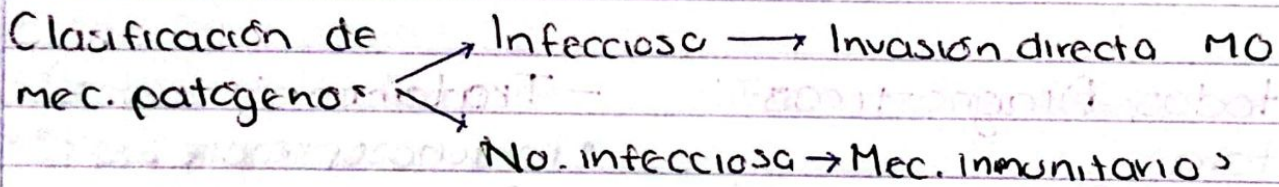 Clasificación de
mec. patógenos
Infecciosa → Invasión directa MO
No. infecciosa → Mec. inmunitarios